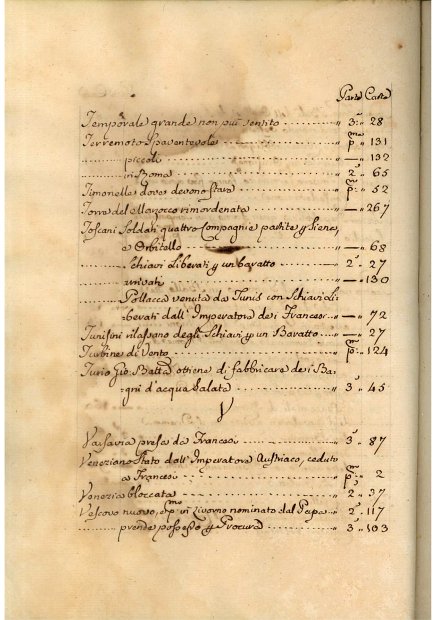 Parte Carte
Temporale grande non più sentito „ 3ª „ 28
Terremoto Spaventevole „ pma „ 131
piccoli „ — „ 132
in Roma „ 2ª „ 65
Timonelle dove devono stare „ pma „ 52
Torre del Marzocco rimordenata „ — „ 267
Toscani Soldati quattro Compagnie partite p Siena,
e Orbitello „ — „ 68
Schiavi Liberati p un baratto „ 2ª „ 27
„ — „ 130
Pollacca venuta da Tunis con Schiavi Li-
berati dall' Imperatore de i Francesi „ — „ 72
Tunisini rilasano degli Schiavi p un Baratto „ — „ 27
Turbine di Vento „ pma „ 124
Turio Gio: Batta ottiene di fabbricare de i Ba-
gni d'acqua Salata „ 3ª „ 45
V
Varsavia presa da Francesi „ 3ª „ 87
Veneziano Stato dall' Imperatore Austriaco, ceduto
a Francesi „ „ 2
Venezia bloccata „ 2ª „ 37
Vescovo nuovo, e pmo in Livorno nominato dal Papa „ 2ª „ 117
prende possesso p Procura „ 3ª „ 103